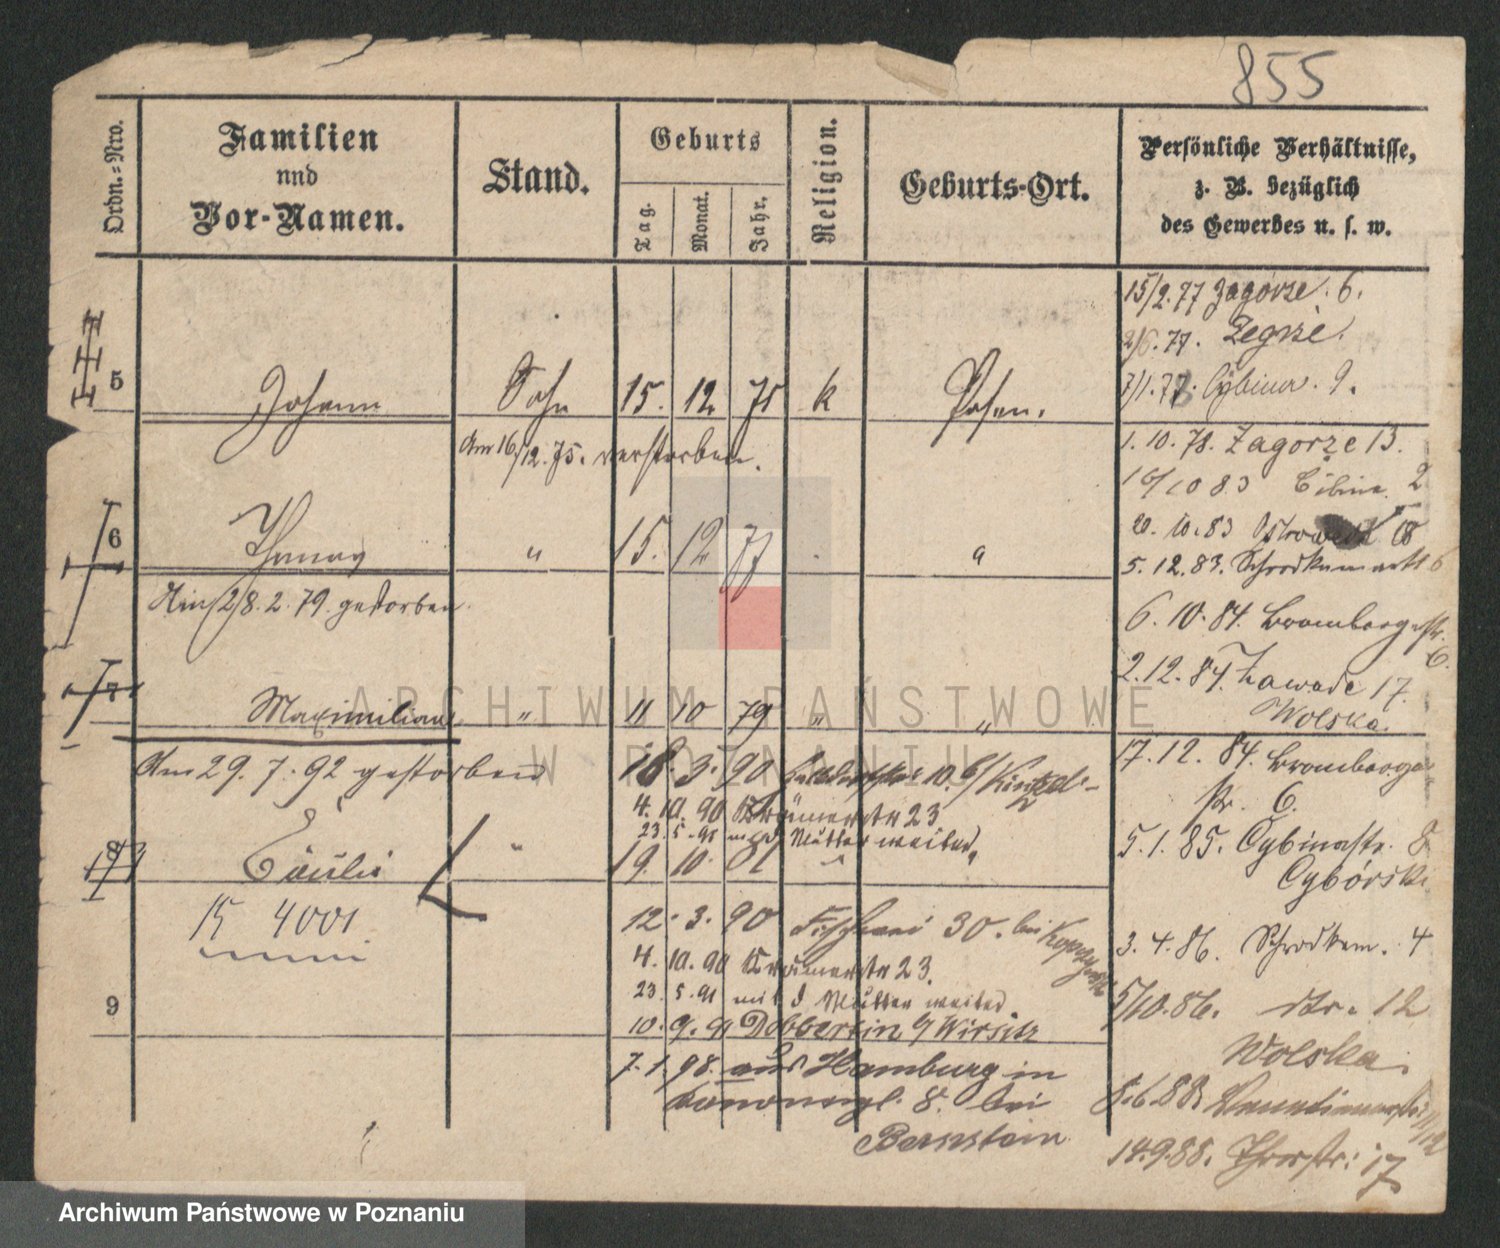 855
Ordn.=Nro.
Familien
und
Vor-Namen.
Stand.
Geburts
Tag.
Monat.
Jahr.
Religion.
Geburts-Ort.
Persönliche Verhältnisse,
z. B. bezüglich
des Gewerbes u. s. w.
15/2.77 Zagórze. 6.
2/6.77. Zegrze.
5 Johann Sohn 15. 12. 75 k Posen.
7/1.78. Cybina. 9.
Am 16/12.75. verstorben.
1. 10. 78. Zagorze 13.
16/10 83 Cibina 2
6 Thomas " 15. 12 77 "
20. 10.83 Ostrowek 18
5. 12. 83. Schrodkamarkt 6
Am 28. 2. 79. gestorben.
6. 10. 84. Brombergerstr. 6.
7 Maximilian " 11 10 79 " "
2.12.84. Zawade 17.
Wolska.
Am 29. 7. 92 gestorben
18. 3. 90 10. b/
17. 12. 84. Bromberger
str. 6.
4. 10. 90 Krämerstr 23
23. 5. 91 mit d. Mutter weiter.
8 Cäcilie " 19. 10. 81 "
5.1.85. Cybinastr. 8
Cybórski
15 4001
12. 3. 90 Fischerei 30. bei
4. 10. 90 Krämerstr 23.
3. 4. 86. Schrodkam. 4
23. 5. 91 mit d Mutter weiter.
9
5/10.86. str. 12
Wolska.
10. 9. 91 Dobbertin b/ Wirsitz
7. 1. 98. aus Hamburg in
Kanonenpl. 8. bei
Bernstein
8.6.88 Venetianerstr. 11/12
14.9.88. Thorstr. 17
ARCHIWUM PAŃSTWOWE
W POZNANIU
Archiwum Państwowe w Poznaniu